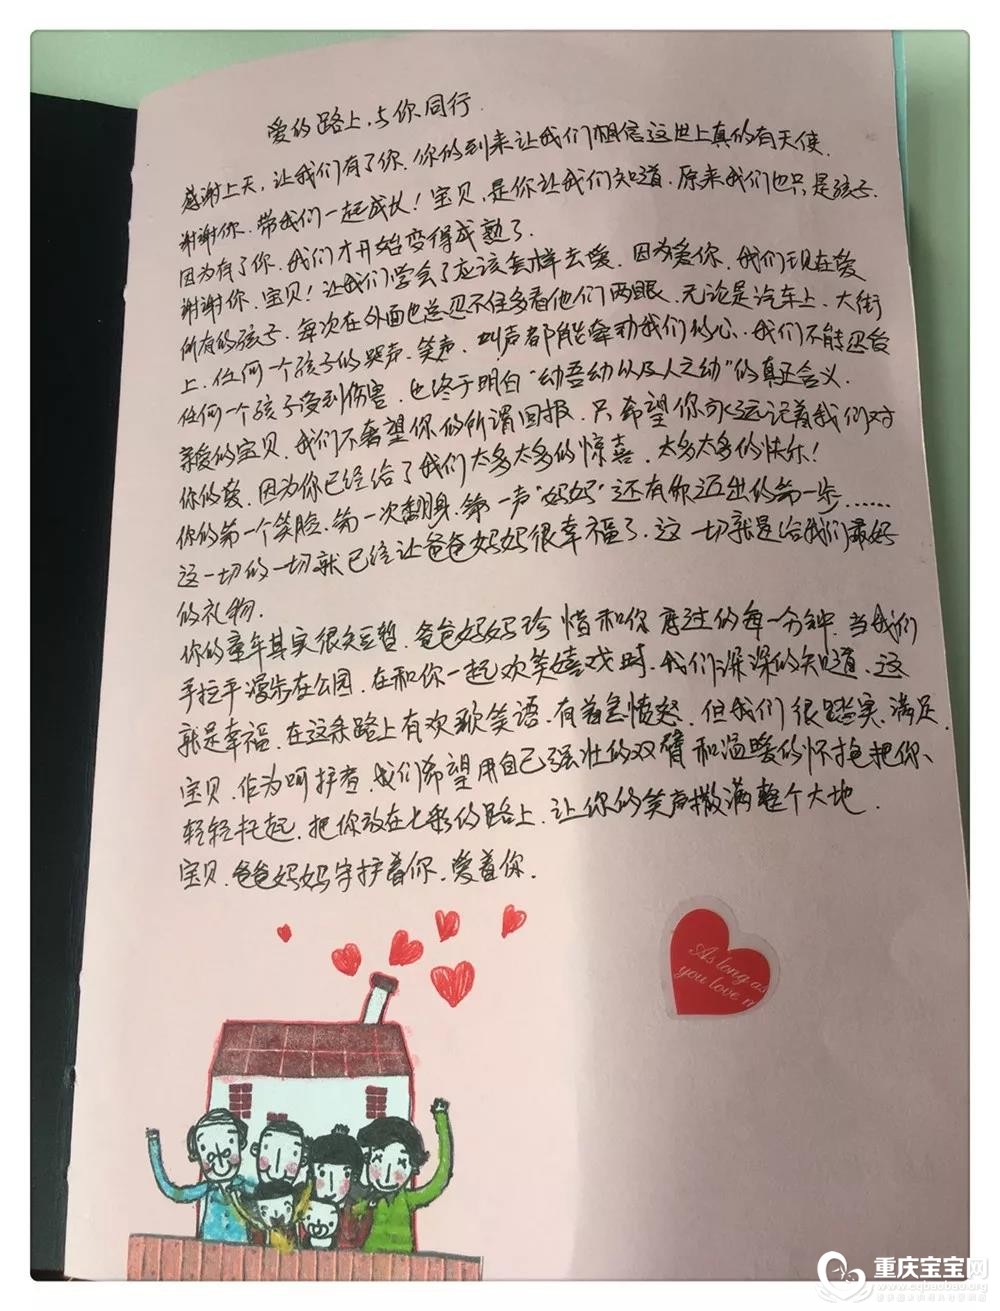 爱的路上，与你同行.
感谢上天，让我们有了你.你的到来让我们相信这世上真的有天使.
谢谢你.带我们一起成长！宝贝，是你让我们知道.原来我们也只是孩子.
因为有了你.我们才开始变得成熟了.
谢谢你.宝贝！让我们学会了应该怎样去爱.因为爱你.我们现在爱
所有的孩子.每次在外面也总忍不住多看他们两眼.无论是汽车上.大街
上.任何一个孩子的哭声.笑声.叫声都能牵动我们的心.我们不能忍受
任何一个孩子受到伤害.也终于明白“幼吾幼以及人之幼”的真正含义.
亲爱的宝贝.我们不奢望你的所谓回报.只希望你永远记着我们对
你的爱.因为你已经给了我们太多太多的惊喜.太多太多的快乐！
你的第一个笑脸.第一次翻身.第一声“妈妈”还有你迈出的第一步……
这一切的一切就已经让爸爸妈妈很幸福了.这一切就是给我们最好
的礼物.
你的童年其实很短暂.爸爸妈妈珍惜和你度过的每一分钟.当我们
手拉手漫步在公园.在和你一起欢笑嬉戏时.我们深深的知道.这
就是幸福.在这条路上有欢歌笑语.有着急愤怒.但我们很踏实.满足.
宝贝.作为呵护者.我们希望用自己强壮的双臂和温暖的怀抱把你、
轻轻托起.把你放在七彩的路上.让你的笑声撒满整个大地.
宝贝.爸爸妈妈守护着你.爱着你.
As long as
you love m
重庆宝宝网
www.cqbaobao.org